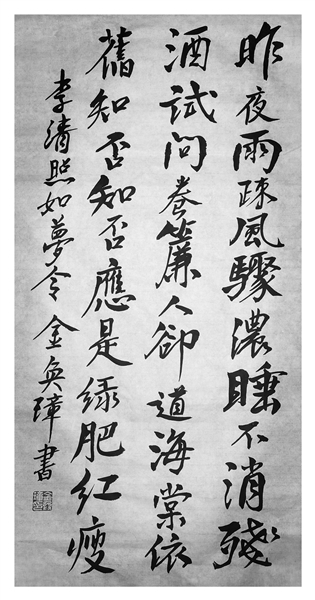 昨夜雨疎風驟濃睡不消殘
酒試問卷簾人卻道海棠依
舊知否知否應是綠肥紅瘦
李清照如夢令 金奐璋書